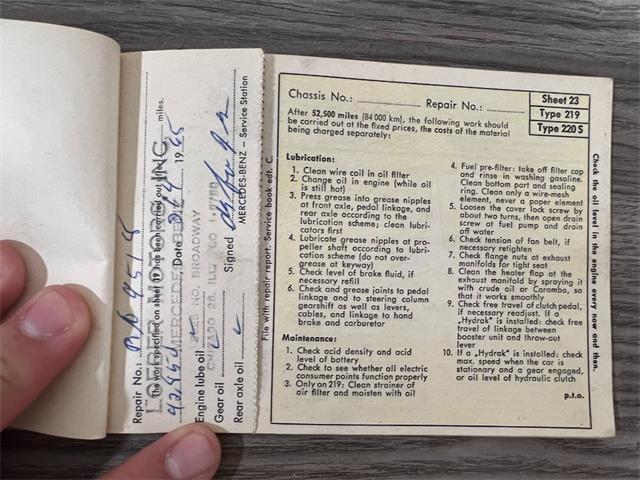 Chassis No.: Repair No.:
Sheet 23
Type 219
Type 220 S
After 52,500 miles (84 000 km), the following work should
be carried out at the fixed prices, the costs of the material
being charged separately:
Lubrication:
1. Clean wire coil in oil filter
2. Change oil in engine (while oil
is still hot)
3. Press grease into grease nipples
at front axle, pedal linkage, and
rear axle according to the
lubrication scheme; clean lubri-
cators first
4. Lubricate grease nipples at pro-
peller shaft according to lubri-
cation scheme (do not over-
grease at keyway)
5. Check level of brake fluid, if
necessary refill
6. Check and grease joints to pedal
linkage and to steering column
gearshift as well as levers,
cables, and linkage to hand
brake and carburetor
Maintenance:
1. Check acid density and acid
level of battery
2. Check to see whether all electric
consumer points function properly
3. Only on 219: Clean strainer of
air filter and moisten with oil
4. Fuel pre-filter: take off filter cap
and rinse in washing gasoline.
Clean bottom part and sealing
ring. Clean only a wire-mesh
element, never a paper element
5. Loosen the cover lock screw by
about two turns, then open drain
screw at fuel pump and drain
off water
6. Check tension of fan belt, if
necessary retighten
7. Check flange nuts at exhaust
manifolds for tight seat
8. Clean the heater flap at the
exhaust manifold by spraying it
with crude oil or Caramba, so
that it works smoothly
9. Check free travel of clutch pedal,
if necessary readjust. If a
„Hydrak" is installed: check free
travel of linkage between
booster unit and throw-out
lever
10. If a „Hydrak" is installed: check
max. speed when the car is
stationary and a gear engaged,
or oil level of hydraulic clutch
p.t.o.
Check the oil level in the engine every now and then.
File with repair report. Service book edt. C.
Repair No.
The work specified on sheet has been carried out after
miles.
LOEBER MOTORS INC.
MERCEDES-BENZ
Date 19 65
BROADWAY
CHICAGO
Engine lube oil
Gear oil
Rear axle oil
Signed
MERCEDES-BENZ – Service Station